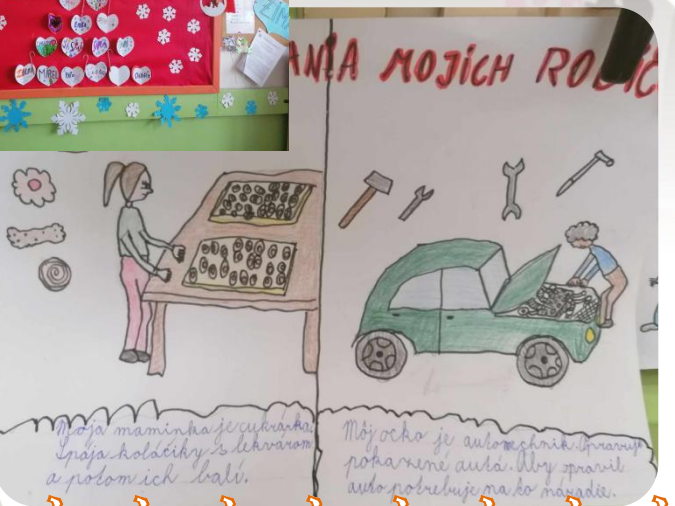 ANIA MOJICH RODIČ
Moja maminka je cukrárka.
Spája koláčiky s lekvárom
a potom ich balí.
Môj ocko je automechnik. Opravuje
pokazené autá. Aby opravil
auto potrebuje na to náradie.